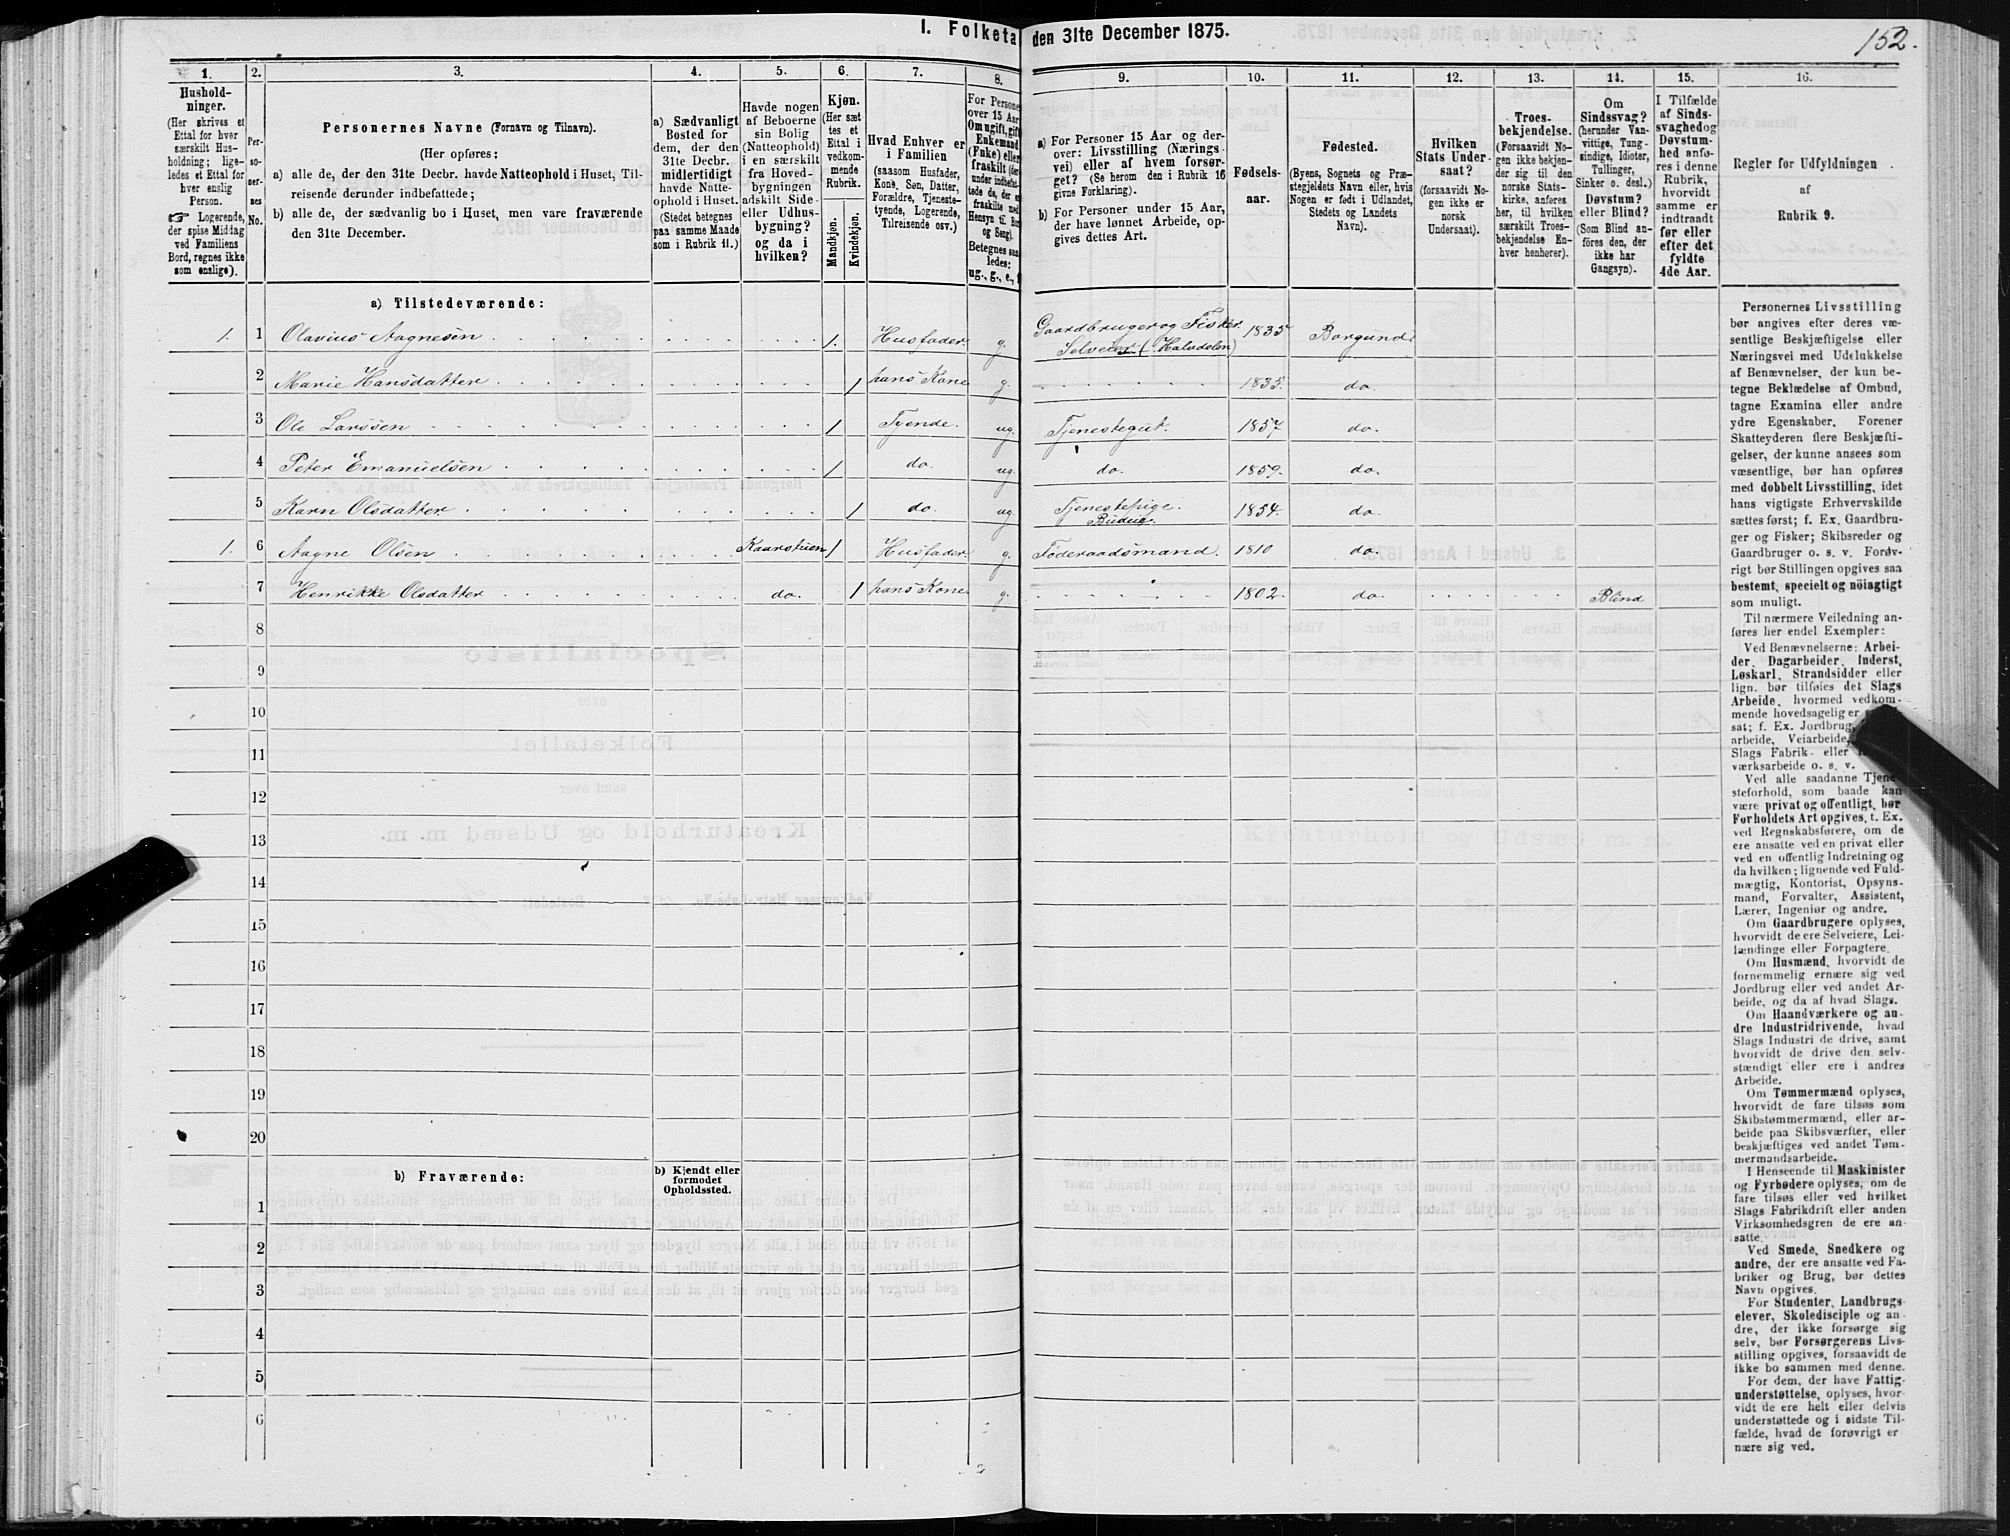 1. Folketa den 31te December 1875.
152.
1.
Hushold-
ninger.
(Her skrives et
Ettal for hver
særskilt Hus-
holdning; lige-
ledes et Ettal for
hver enslig
Person.
☞ Logerende,
der spise Middag
ved Familiens
Bord, regnes ikke
som enslige).
2.
Per-
so-
ner-
nes
No.
3.
Personernes Navne (Fornavn og Tilnavn).
(Her opføres:
a) alle de, der den 31te Decbr. havde Natteophold i Huset, Til-
reisende derunder indbefattede;
b) alle de, der sædvanlig bo i Huset, men vare fraværende
den 31te December.
4.
a) Sædvanligt
Bosted for
dem, der den
31te Decbr.
midlertidigt
havde Natte-
ophold i Huset.
(Stedet betegnes
paa samme Maade
som i Rubrik 11.)
5.
Havde nogen
af Beboerne
sin Bolig
(Natteophold)
i en særskilt
fra Hoved-
bygningen
adskilt Side-
eller Udhus-
bygning?
og da i
hvilken?
6.
Kjøn.
(Her sæt-
tes et
Ettal i
vedkom-
mende
Rubrik.
Mandkjøn.
Kvindekjøn.
7.
Hvad Enhver er
i Familien
(saasom Husfader,
Kone, Søn, Datter,
Forældre, Tjeneste-
tyende, Logerende,
Tilreisende osv.)
8.
For Persone
over 15 Aar
Om ugift, gift
Enkemand
(Enke) eller
fraskilt
Betegnes saa
ledes:
ug., g., e.,
9.
a) For Personer 15 Aar og der-
over: Livsstilling (Nærings-
vei) eller af hvem forsør-
get? (Se herom den i Rubrik 16
givne Forklaring).
b) For Personer under 15 Aar,
der have lønnet Arbeide, op-
gives dettes Art.
10.
Fødsels-
aar.
11.
Fødested.
(Byens, Sognets og Præ-
stegjeldets Navn eller, hvis
Nogen er født i Udlandet,
Stedets og Landets
Navn).
12.
Hvilken
Stats Under-
saat?
(forsaavidt No-
gen ikke er
norsk
Undersaat).
13.
Troes-
bekjendelse.
(Forsaavidt No-
gen ikke bekjen-
der sig til den
norske Stats-
kirke, anføres
her, til hvilken
særskilt Troes-
bekjendelse En-
hver henhører).
14.
Om
Sindssvag?
(herunder Van-
vittige, Tung-
sindige, Idioter,
Tullinger,
Sinker o. desl.)
Døvstum?
eller Blind?
(Som Blind an-
føres den, der
ikke har
Gangsyn).
15.
I Tilfælde
af Sinds-
svaghed og
Døvstum-
hed anfø-
res i denne
Rubrik,
hvorvidt
samme er
indtraadt
før eller
efter det
fyldte
4de Aar.
16.
Regler for Udfyldningen
af
Rubrik 9.
a) Tilstedeværende:
1. 1 Olavius Aagnesen 1. Husfader g. Gaardbruger og Fisker. 1835 Borgund
Selveier (Halvdelen)
2 Marie Hansdatter 1 hans Kone g. 1835. do.
3 Ole Larssen 1 Tyende. ug. Tjenestegut. 1857 do.
4 Peter Emanuelsen 1 do. ug. do. 1859. do.
5 Karn Olsdatter 1 do. ug. Tjenestepige. 1854. do.
Budeie.
1. 6 Aagne Olsen Kaarstuen 1 Husfader g. Føderaadsmand. 1810 do.
7 Henrikke Olsdatter do. 1 hans Kone g. 1802. do. Blind
8
9
10
11
12
13
14
15
16
17
18
19
20
b) Fraværende:
b) Kjendt eller
formodet
Opholdssted.
1
2
3
4
5
6
Personernes Livsstilling
bør angives efter deres væ-
sentlige Beskjæftigelse eller
Næringsvei med Udelukkelse
af Benævnelser, der kun be-
tegne Beklædelse af Ombud,
tagne Examina eller andre
ydre Egenskaber. Forener
Skatteyderen flere Beskjæfti-
gelser, der kunne ansees som
væsentlige, bør han opføres
med dobbelt Livsstilling, idet
hans vigtigste Erhvervskilde
sættes først; f. Ex. Gaardbru-
ger og Fisker; Skibsreder og
Gaardbruger o. s. v. Forøv-
rigt bør Stillingen opgives saa
bestemt, specielt og nöiagtigt
som muligt.
Til nærmere Veiledning an-
føres her endel Exempler:
Ved Benævnelserne: Arbei-
der, Dagarbeider, Inderst,
Løskarl, Strandsidder eller
lign. bør tilføies det Slags
Arbeide, hvormed vedkom-
mende hovedsagelig er
sat; f. Ex. Jordbrug
arbeide, Veiarbeide,
Slags Fabrik- eller
værksarbeide o. s. v.
Ved alle saadanne Tjene-
steforhold, som baade kan
være privat og offentligt, bør
Forholdets Art opgives, t. Ex.
ved Regnskabsførere, om de
ere ansatte ved en privat eller
ved en offentlig Indretning og
da hvilken; lignende ved Fuld-
mægtig, Kontorist, Opsyns-
mand, Forvalter, Assistent,
Lærer, Ingeniør og andre.
Om Gaardbrugere oplyses,
hvorvidt de ere Selveiere, Lei-
lændinge eller Forpagtere.
Om Husmænd, hvorvidt de
fornemmelig ernære sig ved
Jordbrug eller ved andet Ar-
beide, og da af hvad Slags.
Om Haandværkere og an-
dre Industridrivende, hvad
Slags Industri de drive, samt
hvorvidt de drive den selv-
stændigt eller ere i andres
Arbeide.
Om Tømmermænd oplyses,
hvorvidt de fare tilsøs som
Skibstømmermænd, eller ar-
beide paa Skibsværfter, eller
beskjæftiges ved andet Tøm-
mermandsarbeide.
I Henseende til Maskinister
og Fyrbødere oplyses, om de
fare tilsøs eller ved hvilket
Slags Fabrikdrift eller anden
Virksomhedsgren de ere an-
satte.
Ved Smede, Snedkere og
andre, der ere ansatte ved Fa-
briker og Brug, bør dettes
Navn opgives.
For Studenter, Landbrugs-
elever, Skoledisciple og an-
dre, der ikke forsørge sig
selv, bør Forsørgerens Livs-
stilling opgives, forsaavidt de
ikke bo sammen med denne.
For dem, der have Fattig-
understøttelse, oplyses, hvor-
vidt de ere helt eller delvis
understøttede og i sidste Til-
fælde, hvad de forøvrigt er
nære sig ved.